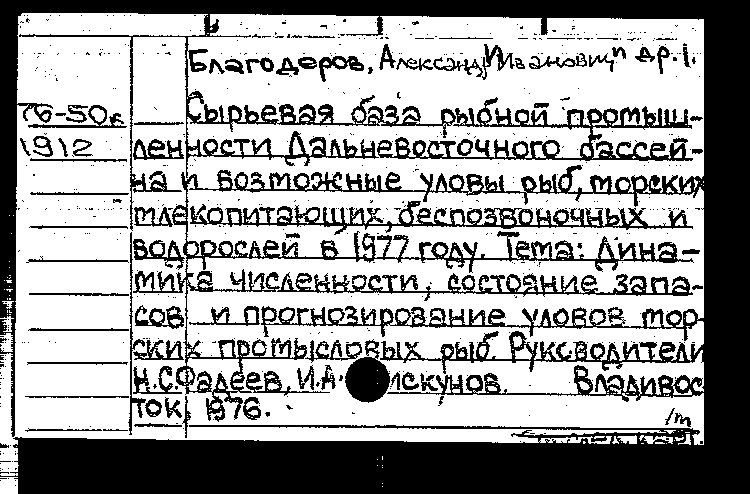 Благодеров, Александр Иванович и др.1.
76-50к Сырьевая база рыбной промыш-
1912 ленности Дальневосточного бассей-
на и возможные уловы рыб, морских
млекопитающих, беспозвоночных и
водорослей в 1977 году. Тема: Дина-
мика численности, состояние запа-
сов и прогнозирование уловов мор-
ских промысловых рыб. Руководители
Н.С.Фадеев, И.А. Пискунов. Владивос
ток, 1976.
/m